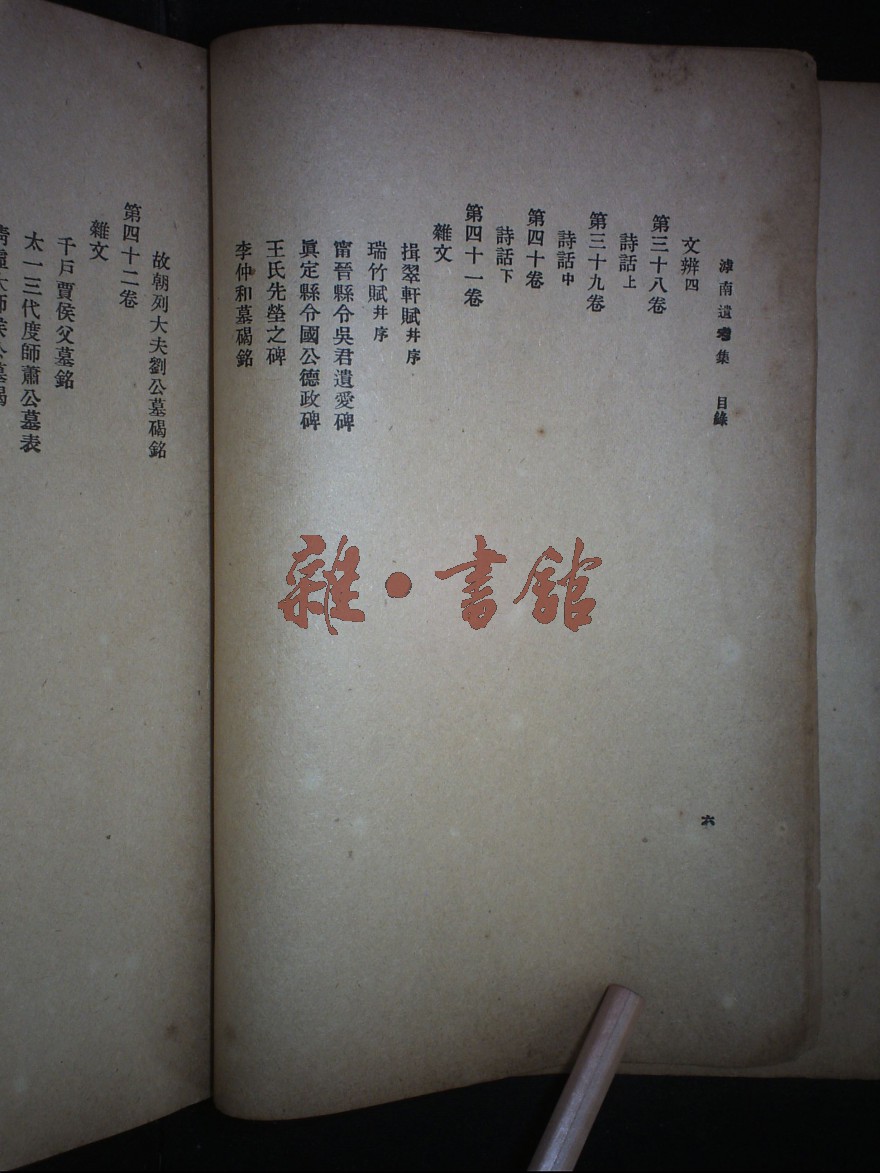 滹南遺老集 目錄
文辨四
第三十八卷
詩話上
第三十九卷
詩話中
第四十卷
詩話下
第四十一卷
雜文
揖翠軒賦幷序
瑞竹賦幷序
甯晉縣令吳君遺愛碑
眞定縣令國公德政碑
王氏先塋之碑
李仲和墓碣銘
六
故朝列大夫劉公墓碣銘
第四十二卷
雜文
千戶賈侯父墓銘
太一三代度師蕭公墓表
清虛大師侯公墓碣
雜·書館